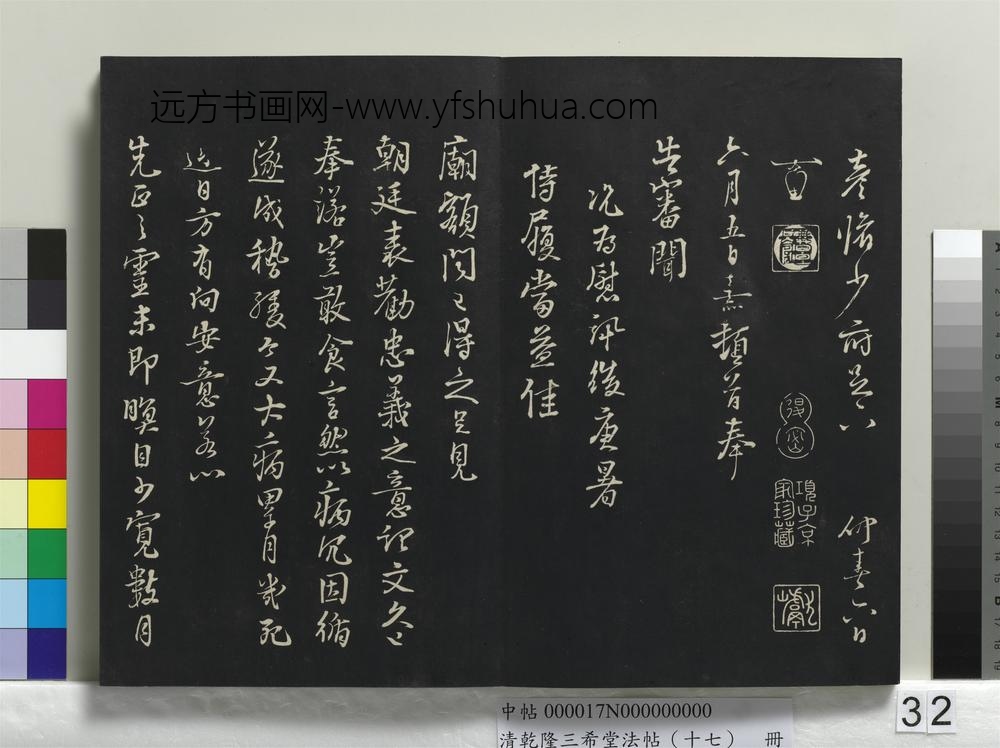 远方书画网-www.yfshuhua.com
彦脩少府足下 仲春六日
項子京
家珍藏
六月五日熹頓首奉
告審聞
況為慰訊後庚暑
侍履當益佳
廟額聞已得之足見
朝廷表勸忠義之意記文久已
奉諾豈敢食言然以病冗因循
遂成稽緩今又大病累月幾死
近日方有向安意若以
先正之靈未即瞑目少寬數月
中帖 000017N000000000
清乾隆三希堂法帖（十七） 册
32